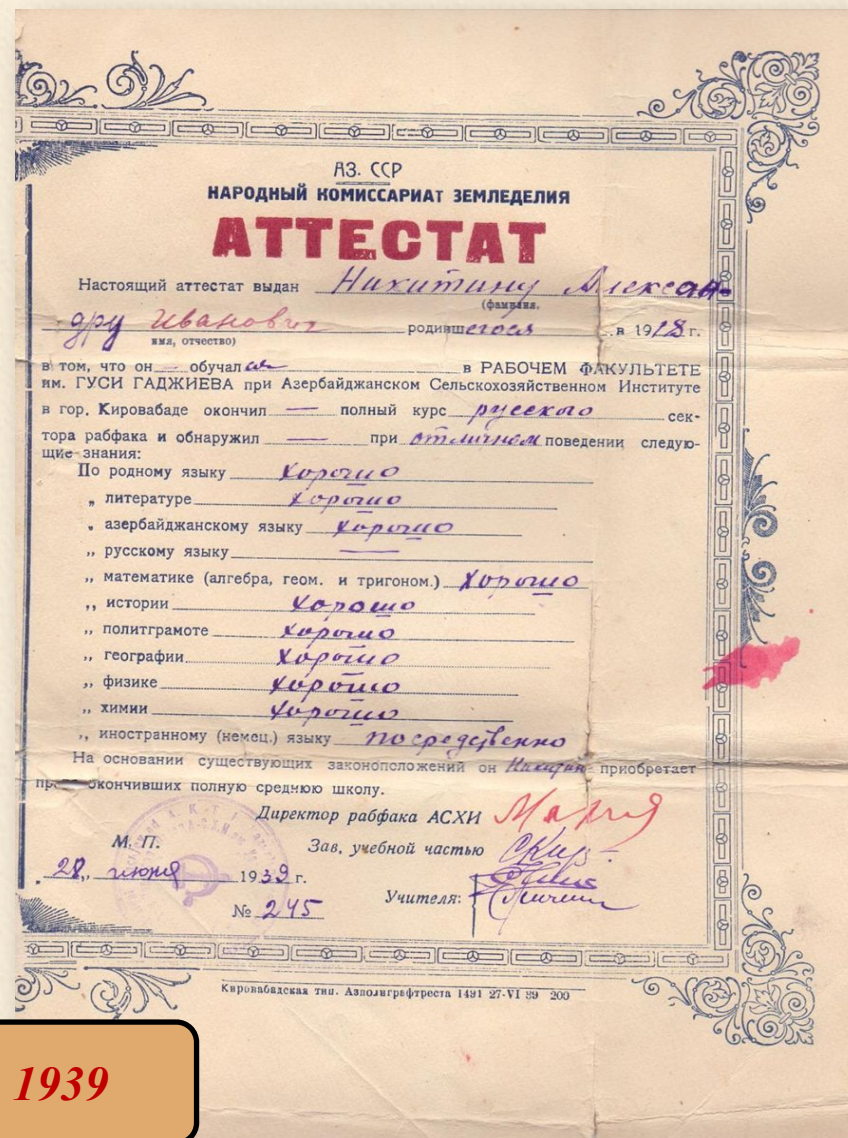 АЗ. ССР
НАРОДНЫЙ КОМИССАРИАТ ЗЕМЛЕДЕЛИЯ
АТТЕСТАТ
Настоящий аттестат выдан Никитину Алексан-
(фамилия,
дру Иванович родившегося в 1918 г.
имя, отчество)
в том, что он — обучался в РАБОЧЕМ ФАКУЛЬТЕТЕ
им. ГУСИ ГАДЖИЕВА при Азербайджанском Сельскохозяйственном Институте
в гор. Кировабаде окончил — полный курс русского сек-
тора рабфака и обнаружил — при отличном поведении следую-
щие знания:
По родному языку хорошо
„ литературе хорошо
„ азербайджанскому языку хорошо
„ русскому языку —
„ математике (алгебра, геом. и тригоном.) хорошо
„ истории хорошо
„ политграмоте хорошо
„ географии хорошо
„ физике хорошо
„ химии хорошо
„ иностранному (немец.) языку посредственно
На основании существующих законоположений он Никитин приобретает
окончивших полную среднюю школу.
Директор рабфака АСХИ
М. П. Зав. учебной частью
„28„ июня 1939 г.
Учителя:
№ 245
Кировабадская тип. Азполиграфтреста 1491 27-VI 39 200
1939